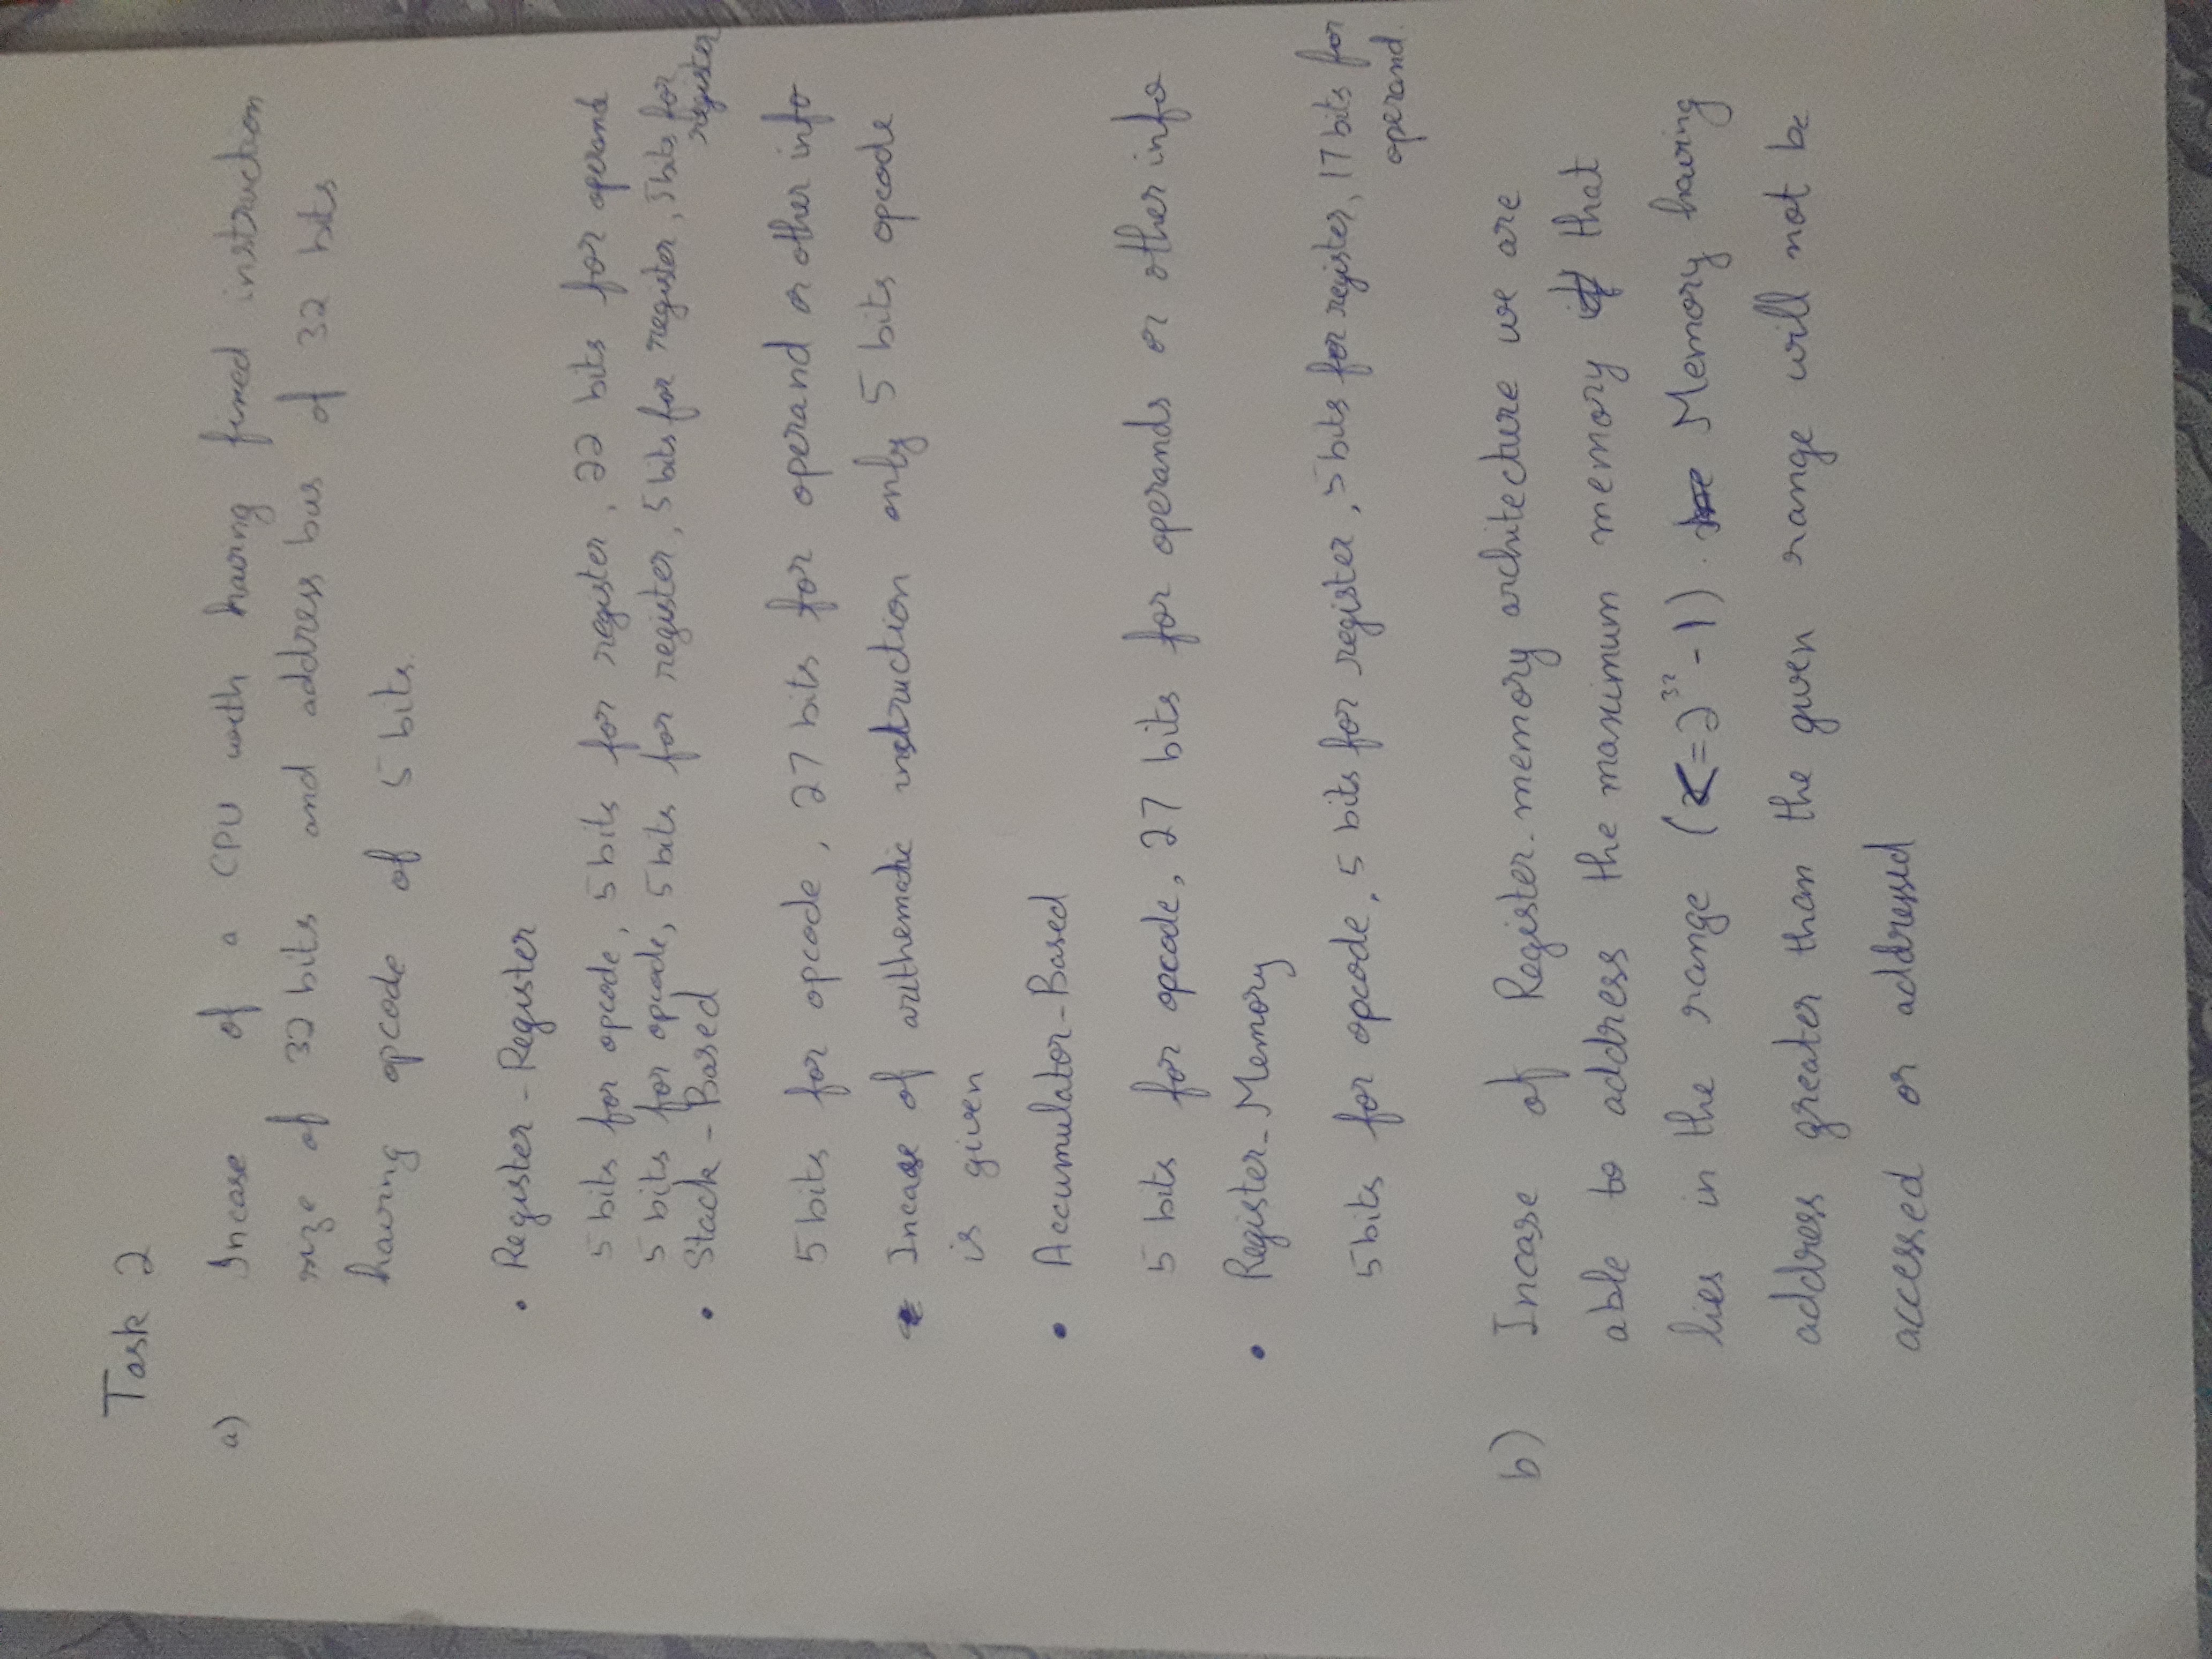 Task 2
a) Incase of a CPU with having fixed instruction
size of 32 bits and address bus of 32 bits
having opcode of 5 bits.
• Register - Register
5 bits for opcode, 5 bits for register, 22 bits for operand
5 bits for opcode, 5 bits for register, 5 bits for register, 5 bits for
register
• Stack - Based
5 bits for opcode, 27 bits for operand or other info
Incase of arithematic instruction only 5 bits opcode
is given
• Accumulator - Based
5 bits for opcode, 27 bits for operands or other info
• Register - Memory
5 bits for opcode, 5 bits for register, 5 bits for register, 17 bits for
operand.
b) Incase of Register - memory architecture we are
able to address the maximum memory that
lies in the range (<=2³²-1). Memory having
address greater than the given range will not be
accessed or addressed